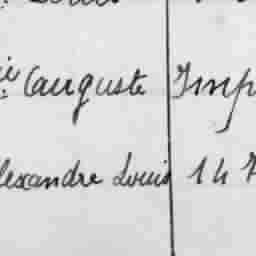 Auguste Imp
lexandre Louis 14 7